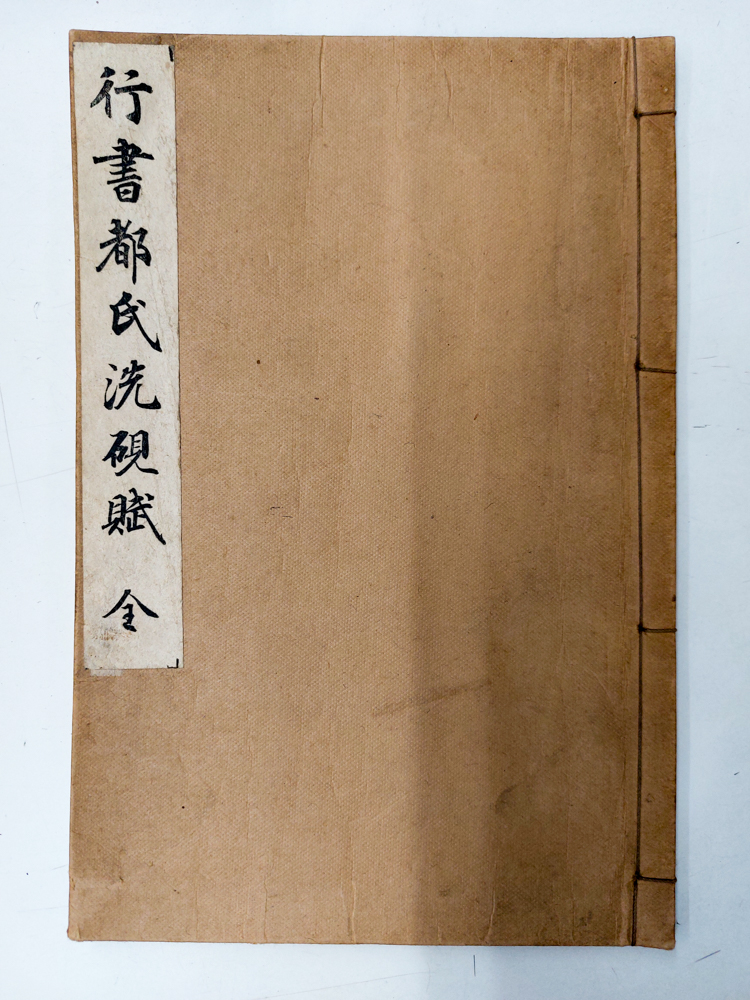 行書都氏洗硯賦 全